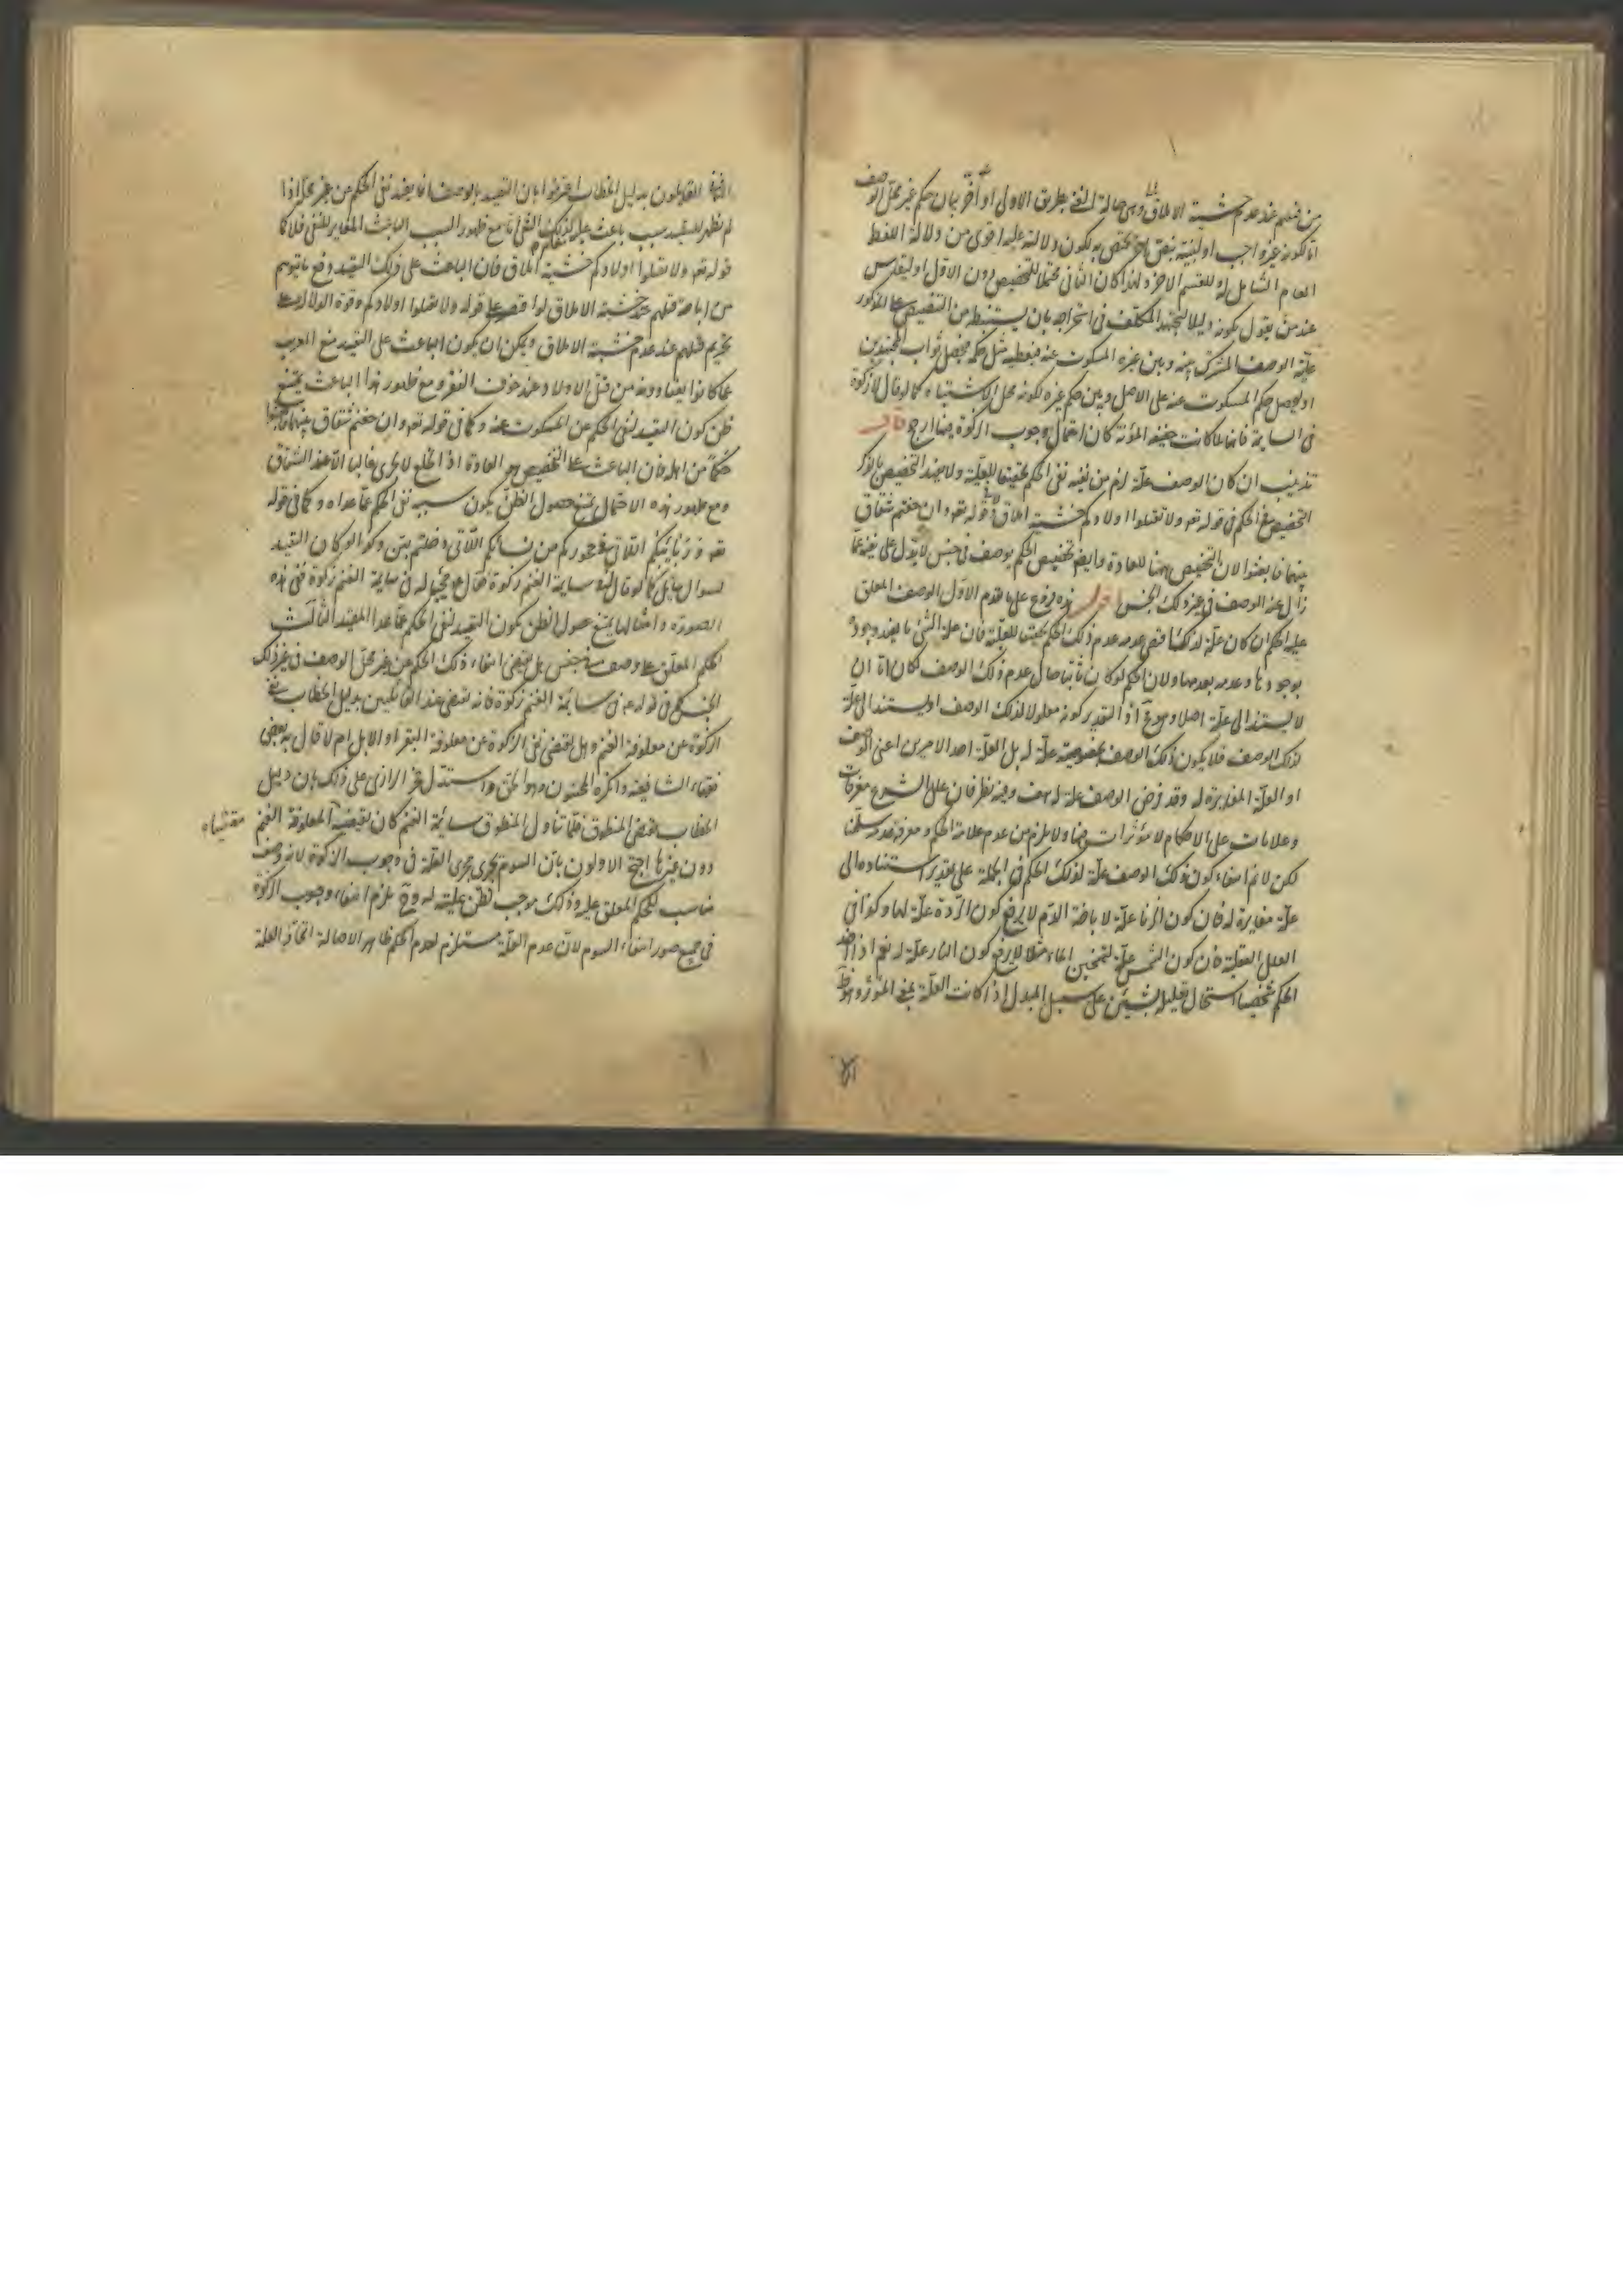 من قتلهم عند عدم خشية الاملاق وهي حالة الغنى بطريق الاولى او آخر بيان حكم غير محل الوصف
اما لكونه غير واجب او لبينة بنص خاص يختص به لكون دلالته عليه اقوى من دلالة اللفظ
العام الشامل له وللقسم الاخر ولهذا كان الثاني محتملا للتخصيص دون الاول او ليقاس
عند من يقول بكونه دليلا ليجتهد المكلف في استخراجه بان يستنبط من التنصيص على المذكور
علية الوصف المشترك بينه وبين غيره المسكوت عنه فيعطيه مثل حكمه فيحصل ثواب المجتهدين
او ليحصل حكم المسكوت عنه على الاصل وبين حكم غيره لكونه محل الاشتباه كما لو قال لا زكوة
في السايمة فانها لما كانت خفيفة المؤنة كان احتمال وجوب الزكوة فيها ارجح قال
تذنيب ان كان الوصف علة لزم من نفيه نفي الحكم تحقيقا للعلية ولا يفيد التخصيص بالذكر
التخصيص في الحكم في قوله تعه ولا تقتلوا اولادكم خشية املاق ولا في قوله تعه وان خفتم شقاق
بينهما فابعثوا لان التخصيص ههنا للعادة وايضا تخصيص الحكم بوصف في جنس لا يدل على نفيه عما
زال عنه الوصف في غير ذلك الجنس اقول هذه فروع على ما تقدم الاول الوصف المعلق
عليه الحكم ان كان علة لذلك اقتضى عدمه عدم ذلك الحكم تحقيقا للعلية فان علة الشئ ما يفيد وجوده
بوجودها وعدمه بعدمها ولان الحكم لو كان ثابتا حال عدم ذلك الوصف لكان اما ان
لا يستند الى علة اصلا وهو مح اذ التقدير كونه معلولا لذلك الوصف او يستند الى علة
لذلك الوصف فلا يكون ذلك الوصف بخصوصيته علة له بل العلة احد الامرين اعني الوصف
او العلة المغايرة له وقد فرض الوصف علة له هف وفيه نظر فان علل الشرع معرفات
وعلامات على الاحكام لا مؤثرات فيها ولا يلزم من عدم علامة الحكم ومعرفه عدمه سلمنا
لكن لا نم انتفاء كون ذلك الوصف علة لذلك الحكم في الجملة على تقدير استناده الى
علة مغايرة له فان كون الزنا علة لاباحة الدم لا يرفع كون الردة علة لها وكذا في
العلل العقلية فان كون الشمس علة لتسخين الماء مثلا لا يرفع كون النار علة له نعم اذا اخذ
الحكم شخصيا استحال تعليله بشيئين على سبيل البدل اذا كانت العلة بمعنى المؤثر وهو ظ
الثاني القايلون بدليل الخطاب اعترفوا بان التقييد بالوصف انما يفيد نفي الحكم عن غير محله اذا
لم يظهر للتقييد سبب باعث عليه غير ذلك النفي اما مع ظهور السبب الباعث المغاير للنفي فلا كما
قوله تعه ولا تقتلوا اولادكم خشية املاق فان الباعث على ذلك التقييد دفع ما يتوهم
من اباحة قتلهم عند خشية الاملاق لو اقتصر على قوله ولا تقتلوا اولادكم وقوة الدلالة على
تحريم قتلهم عند عدم خشية الاملاق ويمكن ان يكون الباعث على التقييد منع العرب
عما كانوا يعتادونه من قتل الاولاد عند خوف الفقر ومع ظهور هذا الباعث يمتنع
ظن كون التقييد لنفي الحكم عن المسكوت عنه وكما في قوله تعه وان خفتم شقاق بينهما فابعثوا
حكما من اهله فان الباعث على التخصيص هو العادة اذ الخلع لا يجري غالبا الا عند الشقاق
ومع ظهور هذه الاحتمال يمتنع حصول الظن بكون سببه نفي الحكم عما عداه وكما في قوله
تعه وربائبكم اللاتي في حجوركم من نسائكم اللاتي دخلتم بهن وكذا لو كان التقييد
لسوال سائل كما لو قال في سايمة الغنم زكوة فقال ع مجيبا له في سايمة الغنم زكوة ففي هذه
الصورة وامثالها يمتنع حصول الظن بكون التقييد لنفي الحكم عما عدا المقيد الثالث
الحكم المعلق على وصف في جنس هل يقتضي انتفاء ذلك الحكم عن غير محل الوصف في غير ذلك
الجنس كما في قوله ع في سائمة الغنم زكوة فانه يقتضي عند القائلين بدليل الخطاب نفي
الزكوة عن معلوفة الغنم وهل يقتضي نفي الزكوة عن معلوفة البقر او الابل ام لا قال به بعض
فقهاء الشافعية وانكره المحققون وهو الحق واستدل فخر الرازي على ذلك بان دليل
الخطاب نقيض المنطوق فلما تناول المنطوق سائمة الغنم كان نقيضه لمعلوفة الغنم مقتضياه
دون غيرها احتج الاولون بان السوم يجري مجرى العلة في وجوب الزكوة لانه وصف
مناسب للحكم المعلق عليه وذلك موجب لظن عليته له وح يلزم انتفاء وجوب الزكوة
في جميع صور انتفاء السوم لان عدم العلة مستلزم لعدم الحكم ظاهرا لاصالة اتحاد العلة